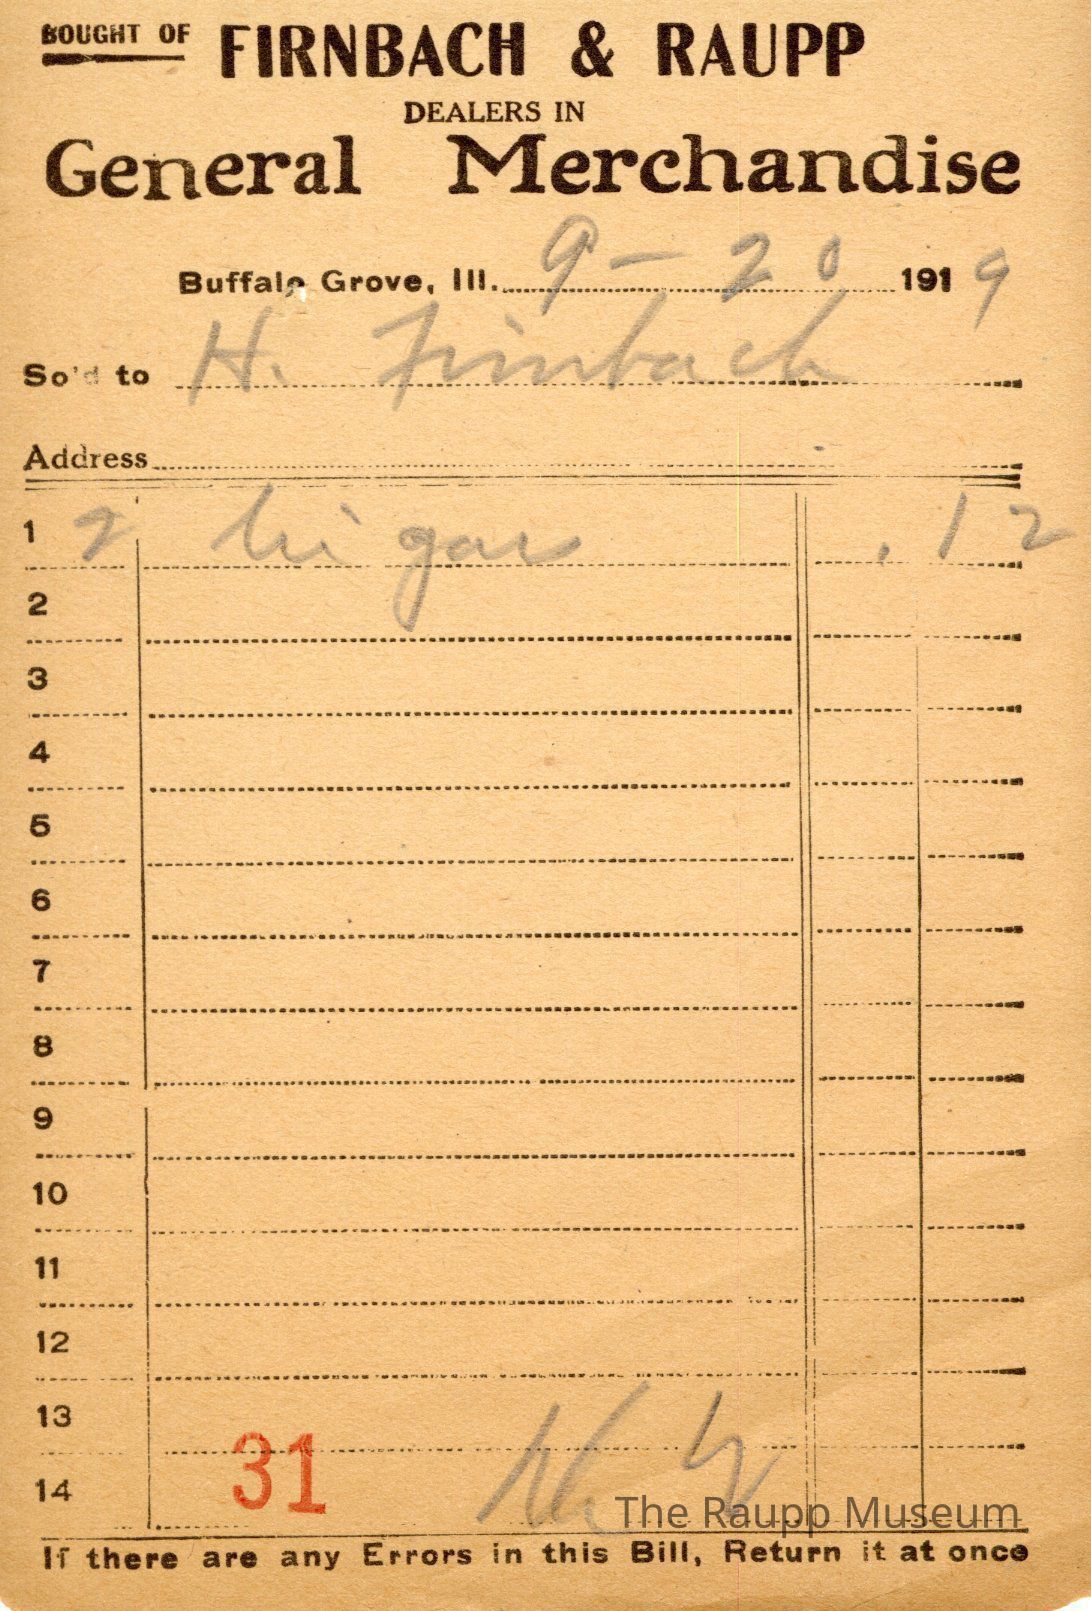 BOUGHT OF FIRNBACH & RAUPP
DEALERS IN
General Merchandise
Buffalo Grove, Ill. 9-20 1919
So'd to H. Firnbach
Address
1 2 cigar .12
2
3
4
5
6
7
8
9
10
11
12
13
14 31
The Raupp Museum
If there are any Errors in this Bill, Return it at once